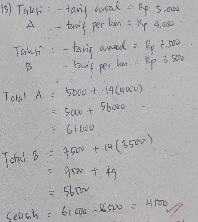 13) Taksi : - tarif awal = Rp 5.000
A - tarif per km = Rp 4.000
Taksi : - tarif awal = Rp 7.000
B - tarif per km = Rp 3 500
Total A = 5000 + 14(4000)
= 5000 + 56000
= 61000
Total B = 7500 + 14 (3500)
= 7500 + 49
= 56500
Selisih = 61 000 - 56500 = 4500